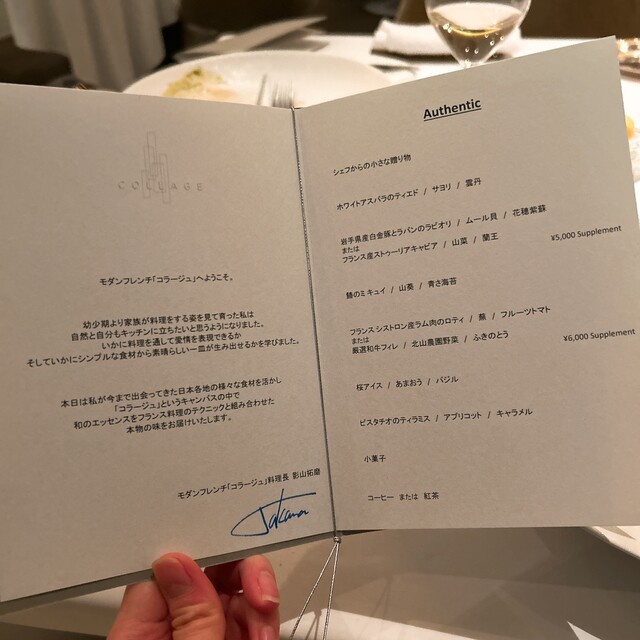 COLLAGE
モダンフレンチ「コラージュ」へようこそ。
幼少期より家族が料理をする姿を見て育った私は
自然と自分もキッチンに立ちたいと思うようになりました。
いかに料理を通して愛情を表現できるか
そしていかにシンプルな食材から素晴らしい一皿が生み出せるかを学びました。
本日は私が今まで出会ってきた日本各地の様々な食材を活かし
「コラージュ」というキャンバスの中で
和のエッセンスをフランス料理のテクニックと組み合わせた
本物の味をお届けいたします。
モダンフレンチ「コラージュ」料理長 影山拓磨
Authentic
シェフからの小さな贈り物
ホワイトアスパラのティエド / サヨリ / 雲丹
岩手県産白金豚とラパンのラビオリ / ムール貝 / 花穂紫蘇
または
フランス産ストゥーリアキャビア / 山菜 / 蘭王 ¥5,000 Supplement
鰆のミキュイ / 山葵 / 青さ海苔
フランス シストロン産ラム肉のロティ / 蕪 / フルーツトマト
または
厳選和牛フィレ / 北山農園野菜 / ふきのとう ¥6,000 Supplement
桜アイス / あまおう / バジル
ピスタチオのティラミス / アプリコット / キャラメル
小菓子
コーヒー または 紅茶